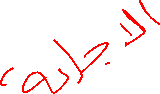 الاجابة